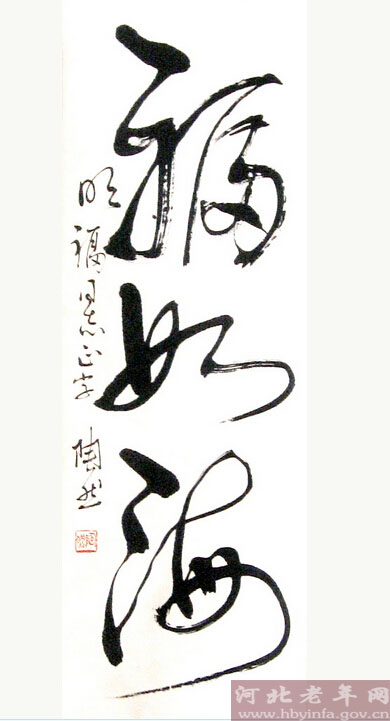 福如海
明福同志正字
陶然
河北老年网
www.hbyinfa.gov.cn